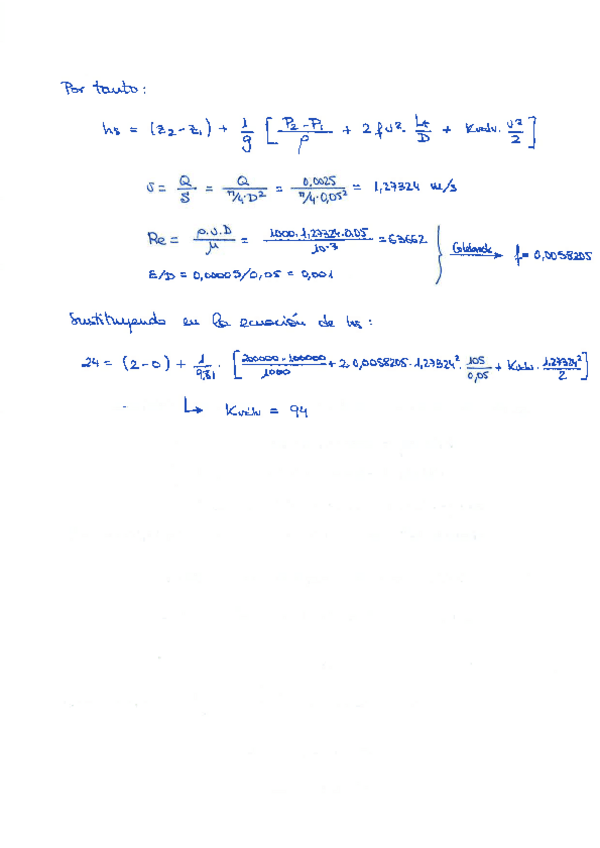 Por tanto:
hs = (z₂-z₁) + 1/g [ (P₂-P₁)/ρ + 2fv²· Lt/D + Kválv. v²/2 ]
v = Q/S = Q/(π/4·D²) = 0,0025/(π/4·0,05²) = 1,27324 m/s
Re = ρ.v.D/μ = 1000·1,27324·0,05/10⁻³ = 63662
ε/D = 0,00005/0,05 = 0,001
Colebrook → f = 0,0058205
Sustituyendo en la ecuación de hs:
24 = (2-0) + 1/9,81 · [ (200000-100000)/1000 + 2·0,0058205·1,27324²· 105/0,05 + Kválv · 1,27324²/2 ]
↳ Kválv = 94